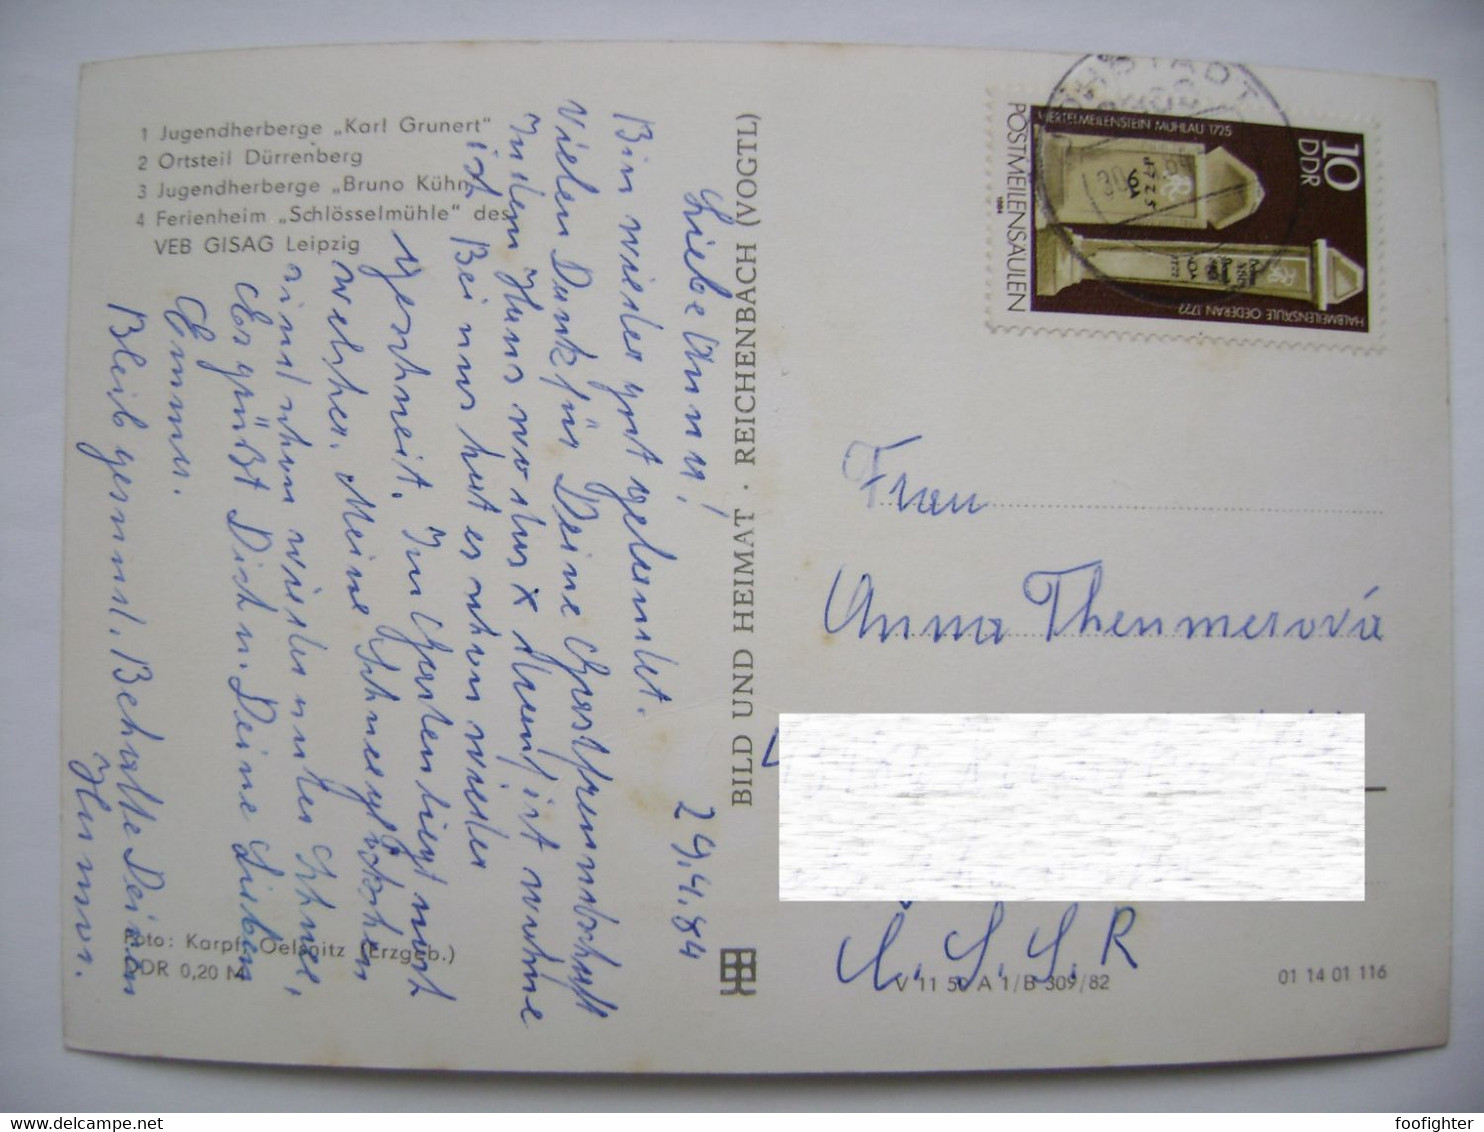 1 Jugendherberge „Karl Grunert"
2 Ortsteil Dürrenberg
3 Jugendherberge „Bruno Kühn"
4 Ferienheim „Schlösselmühle" des
VEB GISAG Leipzig
29.4.84
Liebe Anna!
Bin wieder gut gelandet.
Vielen Dank für Deine Gastfreundschaft
In dem Haus wo das x drauf ist wohne
ich. Bei uns hat es schon wieder
geschneit. Im Garten liegt noch
welcher. Meine Schneeglöckchen
sind schon wieder unter Schnee,
Es grüßt Dich u. Deine Lieben
Emma.
Bleib gesund. Behalte Deinen
Humor.
Foto: Karpf, Oelsnitz (Erzgeb.)
DDR 0,20 M
BILD UND HEIMAT · REICHENBACH (VOGTL)
V 11 50 A 1/B 309/82
01 14 01 116
10
DDR
VIERTELMEILENSTEIN MÜHLAU 1725
HALBMEILENSÄULE OEDERAN 1722
POSTMEILENSÄULEN
1984
Frau
Anna Thenmerová
Č.S.S.R
foofighter